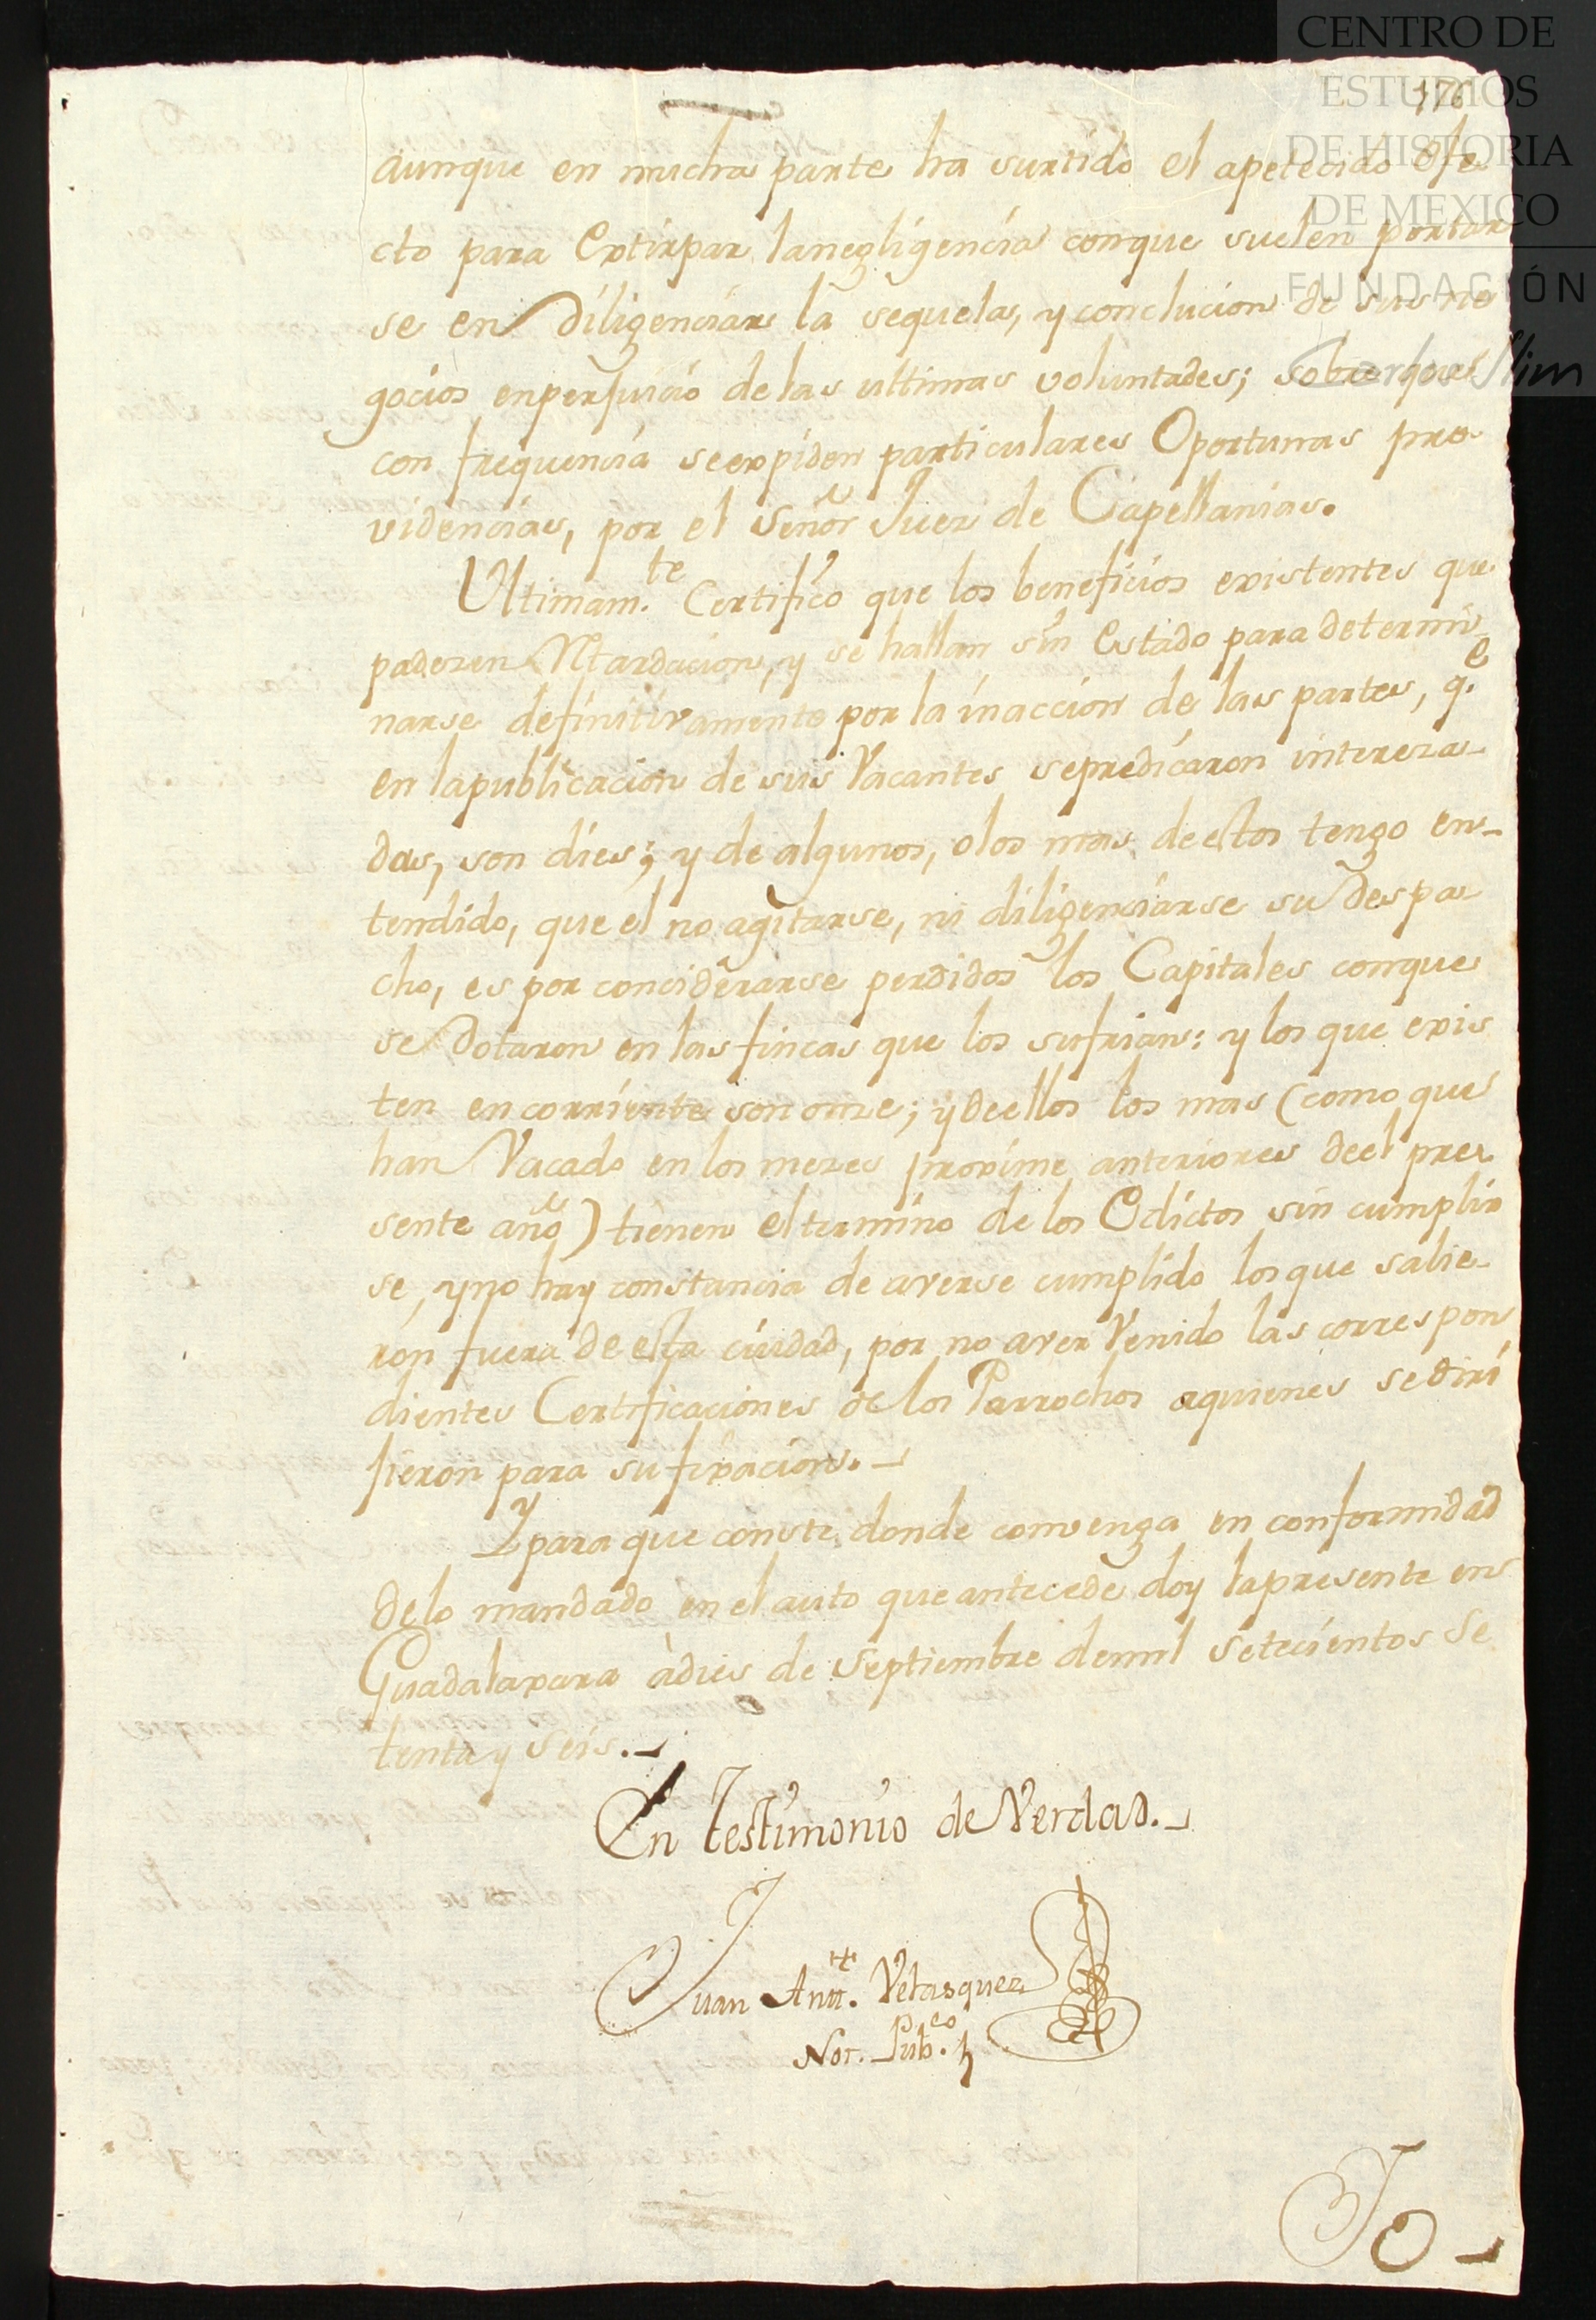 CENTRO DE
ESTUDIOS
DE HISTORIA
DE MEXICO
FUNDACIÓN
Carlos Slim
176
aunque en mucha parte ha surtido el apetecido efe-
cto para Extirpar lanegligencia conque suelen portar
se en diligenciar la sequela, y conclucion de sus ne
gocios enperjuicio de las ultimas voluntades; sobre que
con frequencia seexpiden particulares Oportunas pro-
videncias, por el Señor Juez de Capellanias.
Ultimam.te Certifico que los beneficios existentes que
padezen Retardacion, y se hallan sin Estado para determi-
narse definitivamente por la inaccion de las partes, q.e
en lapublicacion de sus Vacantes sepredicaron intereza-
das, son dies; y de algunos, olos mas de estos tengo en-
tendido, que el no agitarse, ni diligenciarse su despa-
cho, es por conciderarse perdidos los Capitales conque
se dotaron en las fincas que los sufrian: y los que exis
ten en corriente son onze; y deellos los mas (como que
han Vacado en los mezes proxime anteriores deel pre-
sente año) tienen eltermino de los Edictos sin cumplir
se, yno hay constancia de averse cumplido los que salie-
ron fuera de esta ciudad, por no aver Venido las correspon
dientes Certificaciones de los Parrochos aquienes sediri
jieron para su fixacion.
Ypara que conste donde convenga en conformidad
delo mandado en el auto que antecede doy lapresente en
Guadalaxara à dies de Septiembre demil setecientos se
tenta y seis.
En testimonio de Verdad.
Juan Antt.o Velasquez
Not. Pub.co
Jo